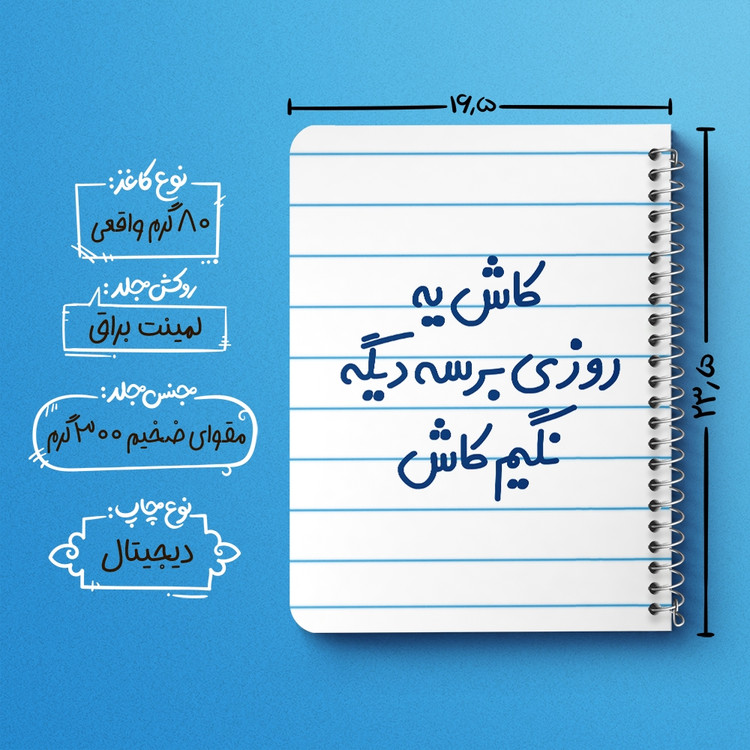 ۱۶٫۵
۲۳٫۵
کاش یه
روزی برسه دیگه
نگیم کاش
نوع کاغذ:
۸۰ گرم واقعی
روکش جلد:
لمینت براق
جنس جلد:
مقوای ضخیم ۳۰۰ گرم
نوع چاپ:
دیجیتال